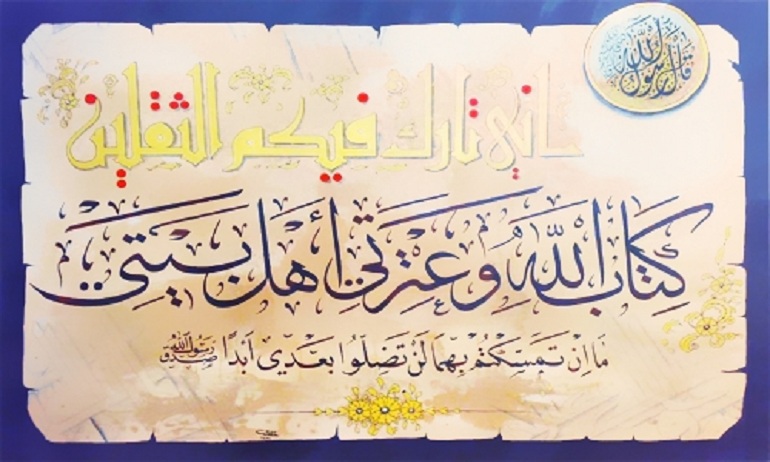 قَالَ رَسُولُ اللّٰهِ
إني تارك فيكم الثقلين
كِتَابَ اللّٰهِ وَعِتْرَتِي أَهْلَ بَيْتِي
مَا إِنْ تَمَسَّكْتُمْ بِهِمَا لَنْ تَضِلُّوا بَعْدِي أَبَدًا صَدَقَ رَسُولُ اللّٰهِ